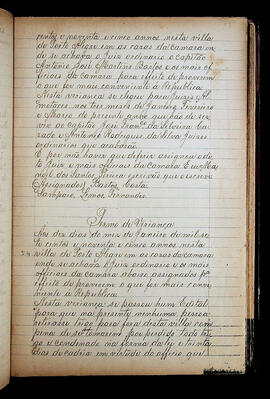 centos e noventa e cinco annos nesta villa
de Porto Alegre em as cazas da camara on
de se achava o Juiz ordinario o capitão
Antonio José Martins Bastos e os mais of
ficiais da camara para effeito de proverem
o que for mais conveniente a Republica.
Nesta vereança se elegeu para Juizes Al
motaces nos tres mezes de Janeiro Fevereiro
e Março do prezente anno que hão de ser
vir ao capitão José Franco da Silveira Ca
zado e Antonio Rodrigues da Silva Juizes
ordinarios que acabarão.
E por não haver que deferir assignou o di
to Juiz e mais officiais da camara Eu Ma
noel dos Santos escrivão que o escrevi
(Assignados) Bastos, Costa
Sampaio, Lemos, Fernandes.
Termo de Vereança
Aos dez dias do mez de Janeiro de mil se
te centos e noventa e cinco annos nesta
villa de Porto Alegre em as cazas da camara
onde se achava o Juiz ordinario e os mais
officiais da camara abaixo assignados pª
effeito de proverem o que for mais conve
niente a Republica.
Nesta vereança se passou hum Edital
para que na prezente ninhuma pessoa
para fora desta villa com
pena de se tomarem por perdido todo
e condenado na forma da ley e trinta
dias de cadeia em virtude do officio que